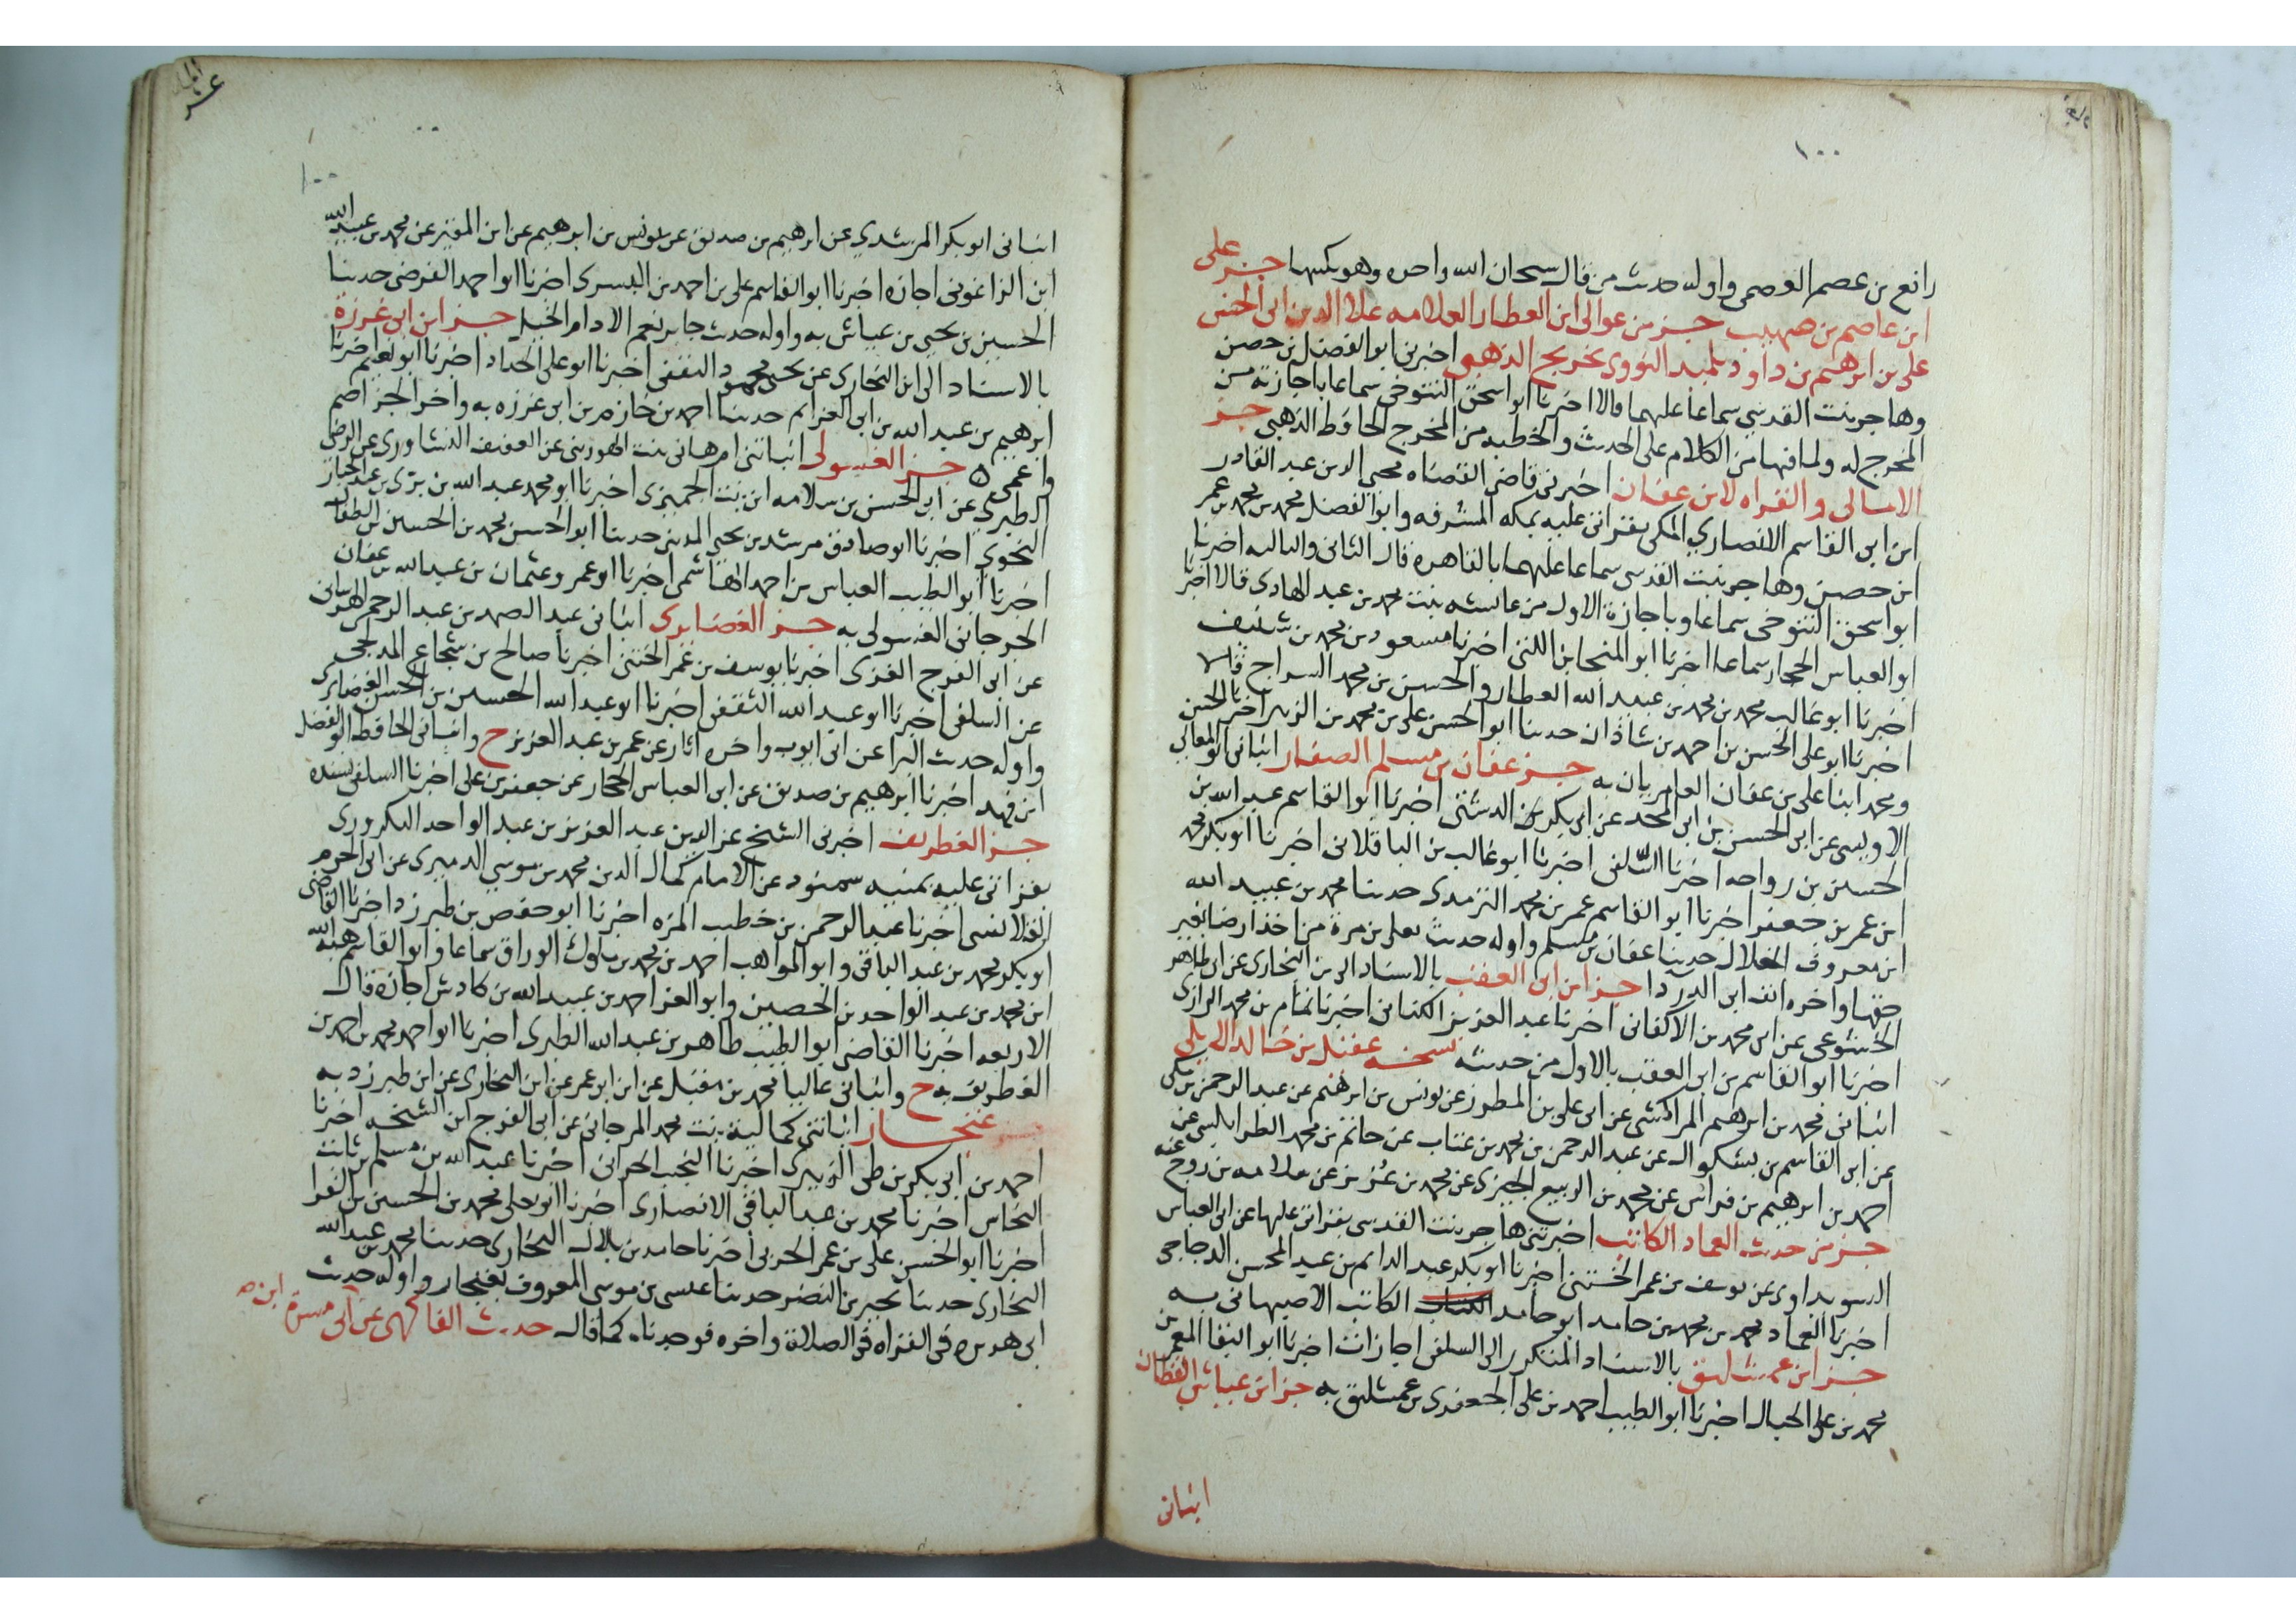 ١٠٠
رافع بن عصم العصمى واوله حديث من قال سبحان الله واخره وهو يكسها جزء على
ابن عاصم بن صهيب جزء من عوالى ابن العطار العلامه علاء الدين ابى الحسن
على بن ابرهيم بن داود تلميذ النووى تخريج الذهبى اخبرنى ابو الفضل بن حصن
وهاجر بنت القدسى سماعا عليهما قالا اخبرنا ابو اسحق التنوخى سماعا باجازته من
المخرج له ولما فيها من الكلام على الحديث والخطبه من المخرج الحافظ الذهبى جزء
الامالى والقراه لابن عفان اخبرنى قاضى القضاه محيى الدين عبد القادر
ابن ابى القاسم الانصارى المكى بقراتى عليه بمكه المشرفه وابو الفضل محمد بن محمد بن عمر
ابن حصن وهاجر بنت القدسى سماعا عليهما بالقاهره قال الثانى والثالثه اخبرنا
ابو اسحق التنوخى سماعا وباجازة الاول من عائشه بنت محمد بن عبد الهادى قالا اخبرنا
ابو العباس الحجار سماعا اخبرنا ابو المنجا بن اللتى اخبرنا مسعود بن محمد بن شنيف
اخبرنا ابو غالب محمد بن محمد بن عبيد الله العطار والحسين بن محمد السراج قالا
اخبرنا ابو على الحسن بن احمد بن شاذان حدثنا ابو الحسن على بن محمد بن الزبير اخبرنا الحسن
ومحمد ابنا على بن عفان العامريان به جزء عفان بن مسلم الصفار انبانى ابو المعالى
الاوليسى عن ابى الحسن بن ابى المجد عن ابى بكر بن الدشتى اخبرنا ابو القاسم عبد الله بن
الحسين بن رواحه اخبرنا السلفى اخبرنا ابو غالب بن الباقلانى اخبرنا ابو بكر محمد
ابن عمر بن جعفر اخبرنا ابو القاسم عمر بن محمد الترمذى حدثنا محمد بن عبيد الله
ابن معروف الخلال حدثنا عفان بن مسلم واوله حديث يعلى بن مرة من اخذ ارضا بغير
حقها واخره انت ابى الدردا جزء ابن ابى العقب بالاسناد الى بن البخارى عن ابى طاهر
الخشوعى عن ابى محمد بن الاكفانى اخبرنا عبد العزيز الكتانى اخبرنا تمام بن محمد الرازى
اخبرنا ابو القاسم بن ابى العقب بالاول من حديثه نسخه عقيل بن خالد الايلى
انبانى محمد بن ابرهيم المراكشى عن ابى على بن المطرز عن يونس بن ابرهيم عن عبد الرحمن بن مكى
عن ابى القاسم بن بشكوال عن عبد الرحمن بن محمد بن عتاب عن حاتم بن محمد الطرابلسى عن
احمد بن ابرهيم بن فراس عن محمد بن الربيع الجيزى عن محمد بن عزيز عن سلامه بن روح عنه
جزء من حديث العماد الكاتب اخبرتنى هاجر بنت القدسى بقراتى عليها عن ابى العباس
السويداوى عن يوسف بن عمر الختنى اخبرنا ابو بكر عبد الدايم بن عبد المحسن الدجاجى
اخبرنا العماد محمد بن محمد بن حامد ابو حامد الكتاب الكاتب الاصبهانى به
جزء ابن عمشليق بالاسناد المتكرر الى السلفى اجازات اخبرنا ابو البقا المعمر بن
محمد بن على الحبال اخبرنا ابو الطيب احمد بن على الجعفرى بن عمشليق به جزء ابن عياش القطان
انبانى
١٠٠
انبانى ابو بكر المرشدى عن ابرهيم بن صديق عن يونس بن ابرهيم عن ابن المقير عن محمد بن عبيد الله
ابن الزاغونى اجازه اخبرنا ابو القاسم على بن احمد بن البسرى اخبرنا ابو احمد الفرضى حدثنا
الحسين بن يحيى بن عياش به واوله حديث جابر نعم الادام الخل جزء ابن ابى غرزة
بالاسناد الى ابن البخارى عن يحيى بن محمود الثقفى اخبرنا ابو على الحداد اخبرنا ابو نعيم اخبرنا
ابرهيم بن عبد الله بن ابى العزايم حدثنا احمد بن حازم بن ابى غرزه به واخر الجزء اصم
واعمى جزء الغسولى انباتنى ام هانى بنت الهورينى عن العفيف النشاورى عن الرضى
الطبرى عن ابى الحسن بن سلامه ابن بنت الجميزى اخبرنا ابو محمد عبد الله بن برى بن عبد الجبار
النحوى اخبرنا ابو صادق مرشد بن يحيى المدينى حدثنا ابو الحسن محمد بن الحسين بن الطفال
اخبرنا ابو الطيب العباس بن احمد الهاشمى اخبرنا ابو عمرو عثمان بن عبد الله بن عفان
الجرجانى الغسولى به جزء الغضايرى انبانى عبد الصمد بن عبد الرحمن الهرسانى
عن ابى الفرج الغزى اخبرنا يوسف بن عمر الختنى اخبرنا صالح بن شجاع المدلجى
عن السلفى اخبرنا ابو عبد الله الثقفى اخبرنا ابو عبد الله الحسين بن الحسن الغضايرى
واوله حديث البرا عن ابى ايوب واخره اثار عن عمر بن عبد العزيز ح وانبانى الحافظ ابو الفضل
ابن فهد اخبرنا ابرهيم بن صديق عن ابى العباس الحجار عن جعفر بن على اخبرنا السلفى بسنده
جزء الغطريف اخبرنى الشيخ عز الدين عبد العزيز بن عبد الواحد التكرورى
بقراتى عليه بمنيه سمنود عن الامام كمال الدين محمد بن موسى الدميرى عن ابى الحرم
القلانسى اخبرنا عبد الرحمن بن خطيب المزه اخبرنا ابو حفص بن طبرزد اخبرنا القاضى
ابو بكر محمد بن عبد الباقى وابو المواهب احمد بن محمد بن ملوك الوراق سماعا وابو القاسم هبة الله
ابن محمد بن عبد الواحد بن الحصين وابو العز احمد بن عبيد الله بن كادش اجازة قال
الاربعه اخبرنا القاضى ابو الطيب طاهر بن عبد الله الطبرى اخبرنا ابو احمد محمد بن احمد بن
الغطريف به ح وانبانى عاليا محمد بن مقبل عن ابن ابى عمر عن ابن البخارى عن ابن طبرزد به
غنجار انباتنى كمالية بنت محمد المرجانى عن ابى الفرج ابن الشيخه اخبرنا
احمد بن ابى بكر بن طى الزبيرى اخبرنا النجيب الحرانى اخبرنا عبد الله بن مسلم بن ثابت
النخاس اخبرنا محمد بن عبد الباقى الانصارى اخبرنا ابو يعلى محمد بن الحسين بن الفرا
اخبرنا ابو الحسن على بن عمر الحربى اخبرنا حامد بن بلال البخارى حدثنا محمد بن عبد الله
البخارى حدثنا بحير بن النضر حدثنا عيسى بن موسى المعروف بغنجار واوله حديث
ابى هريرة فى القراه فى الصلاة واخره فوجدناه كما قال حديث الفاكهى عن ابى مسرة ابن